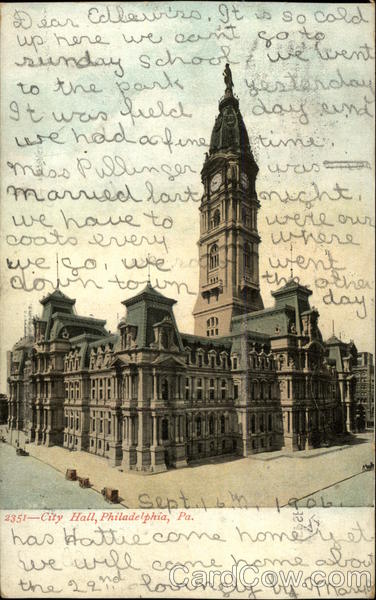 Dear Edlewiss. It is so cold
up here we can't go to
sunday school & we went
to the park yesterday
It was field day and
we had a fine time.
Miss Pullinger was
married last night,
we have to were our
coats every where
we go, we went to
down town the other
day
Sept. 16th, 1906
2351—City Hall, Philadelphia, Pa.
has Hattie come home yet
we will come home about
the 22nd lovingly by
CardCow.com